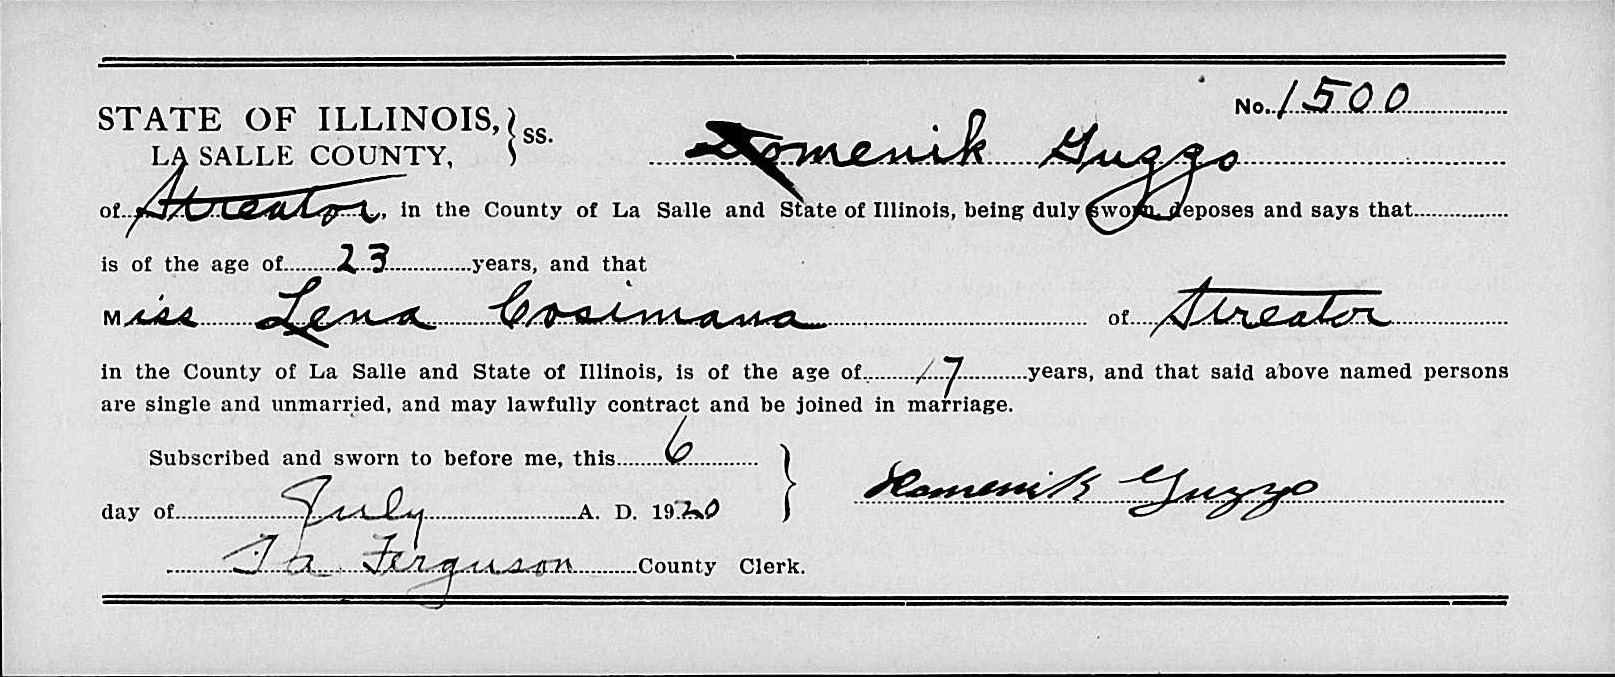 No. 1500
STATE OF ILLINOIS, } ss.
LA SALLE COUNTY,
Domenik Guzzo
of Streator, in the County of La Salle and State of Illinois, being duly sworn, deposes and says that
is of the age of 23 years, and that
Miss Lena Cosimana of Streator
in the County of La Salle and State of Illinois, is of the age of 17 years, and that said above named persons
are single and unmarried, and may lawfully contract and be joined in marriage.
Subscribed and sworn to before me, this 6
day of July A. D. 1920
Domenik Guzzo
Ta Ferguson County Clerk.